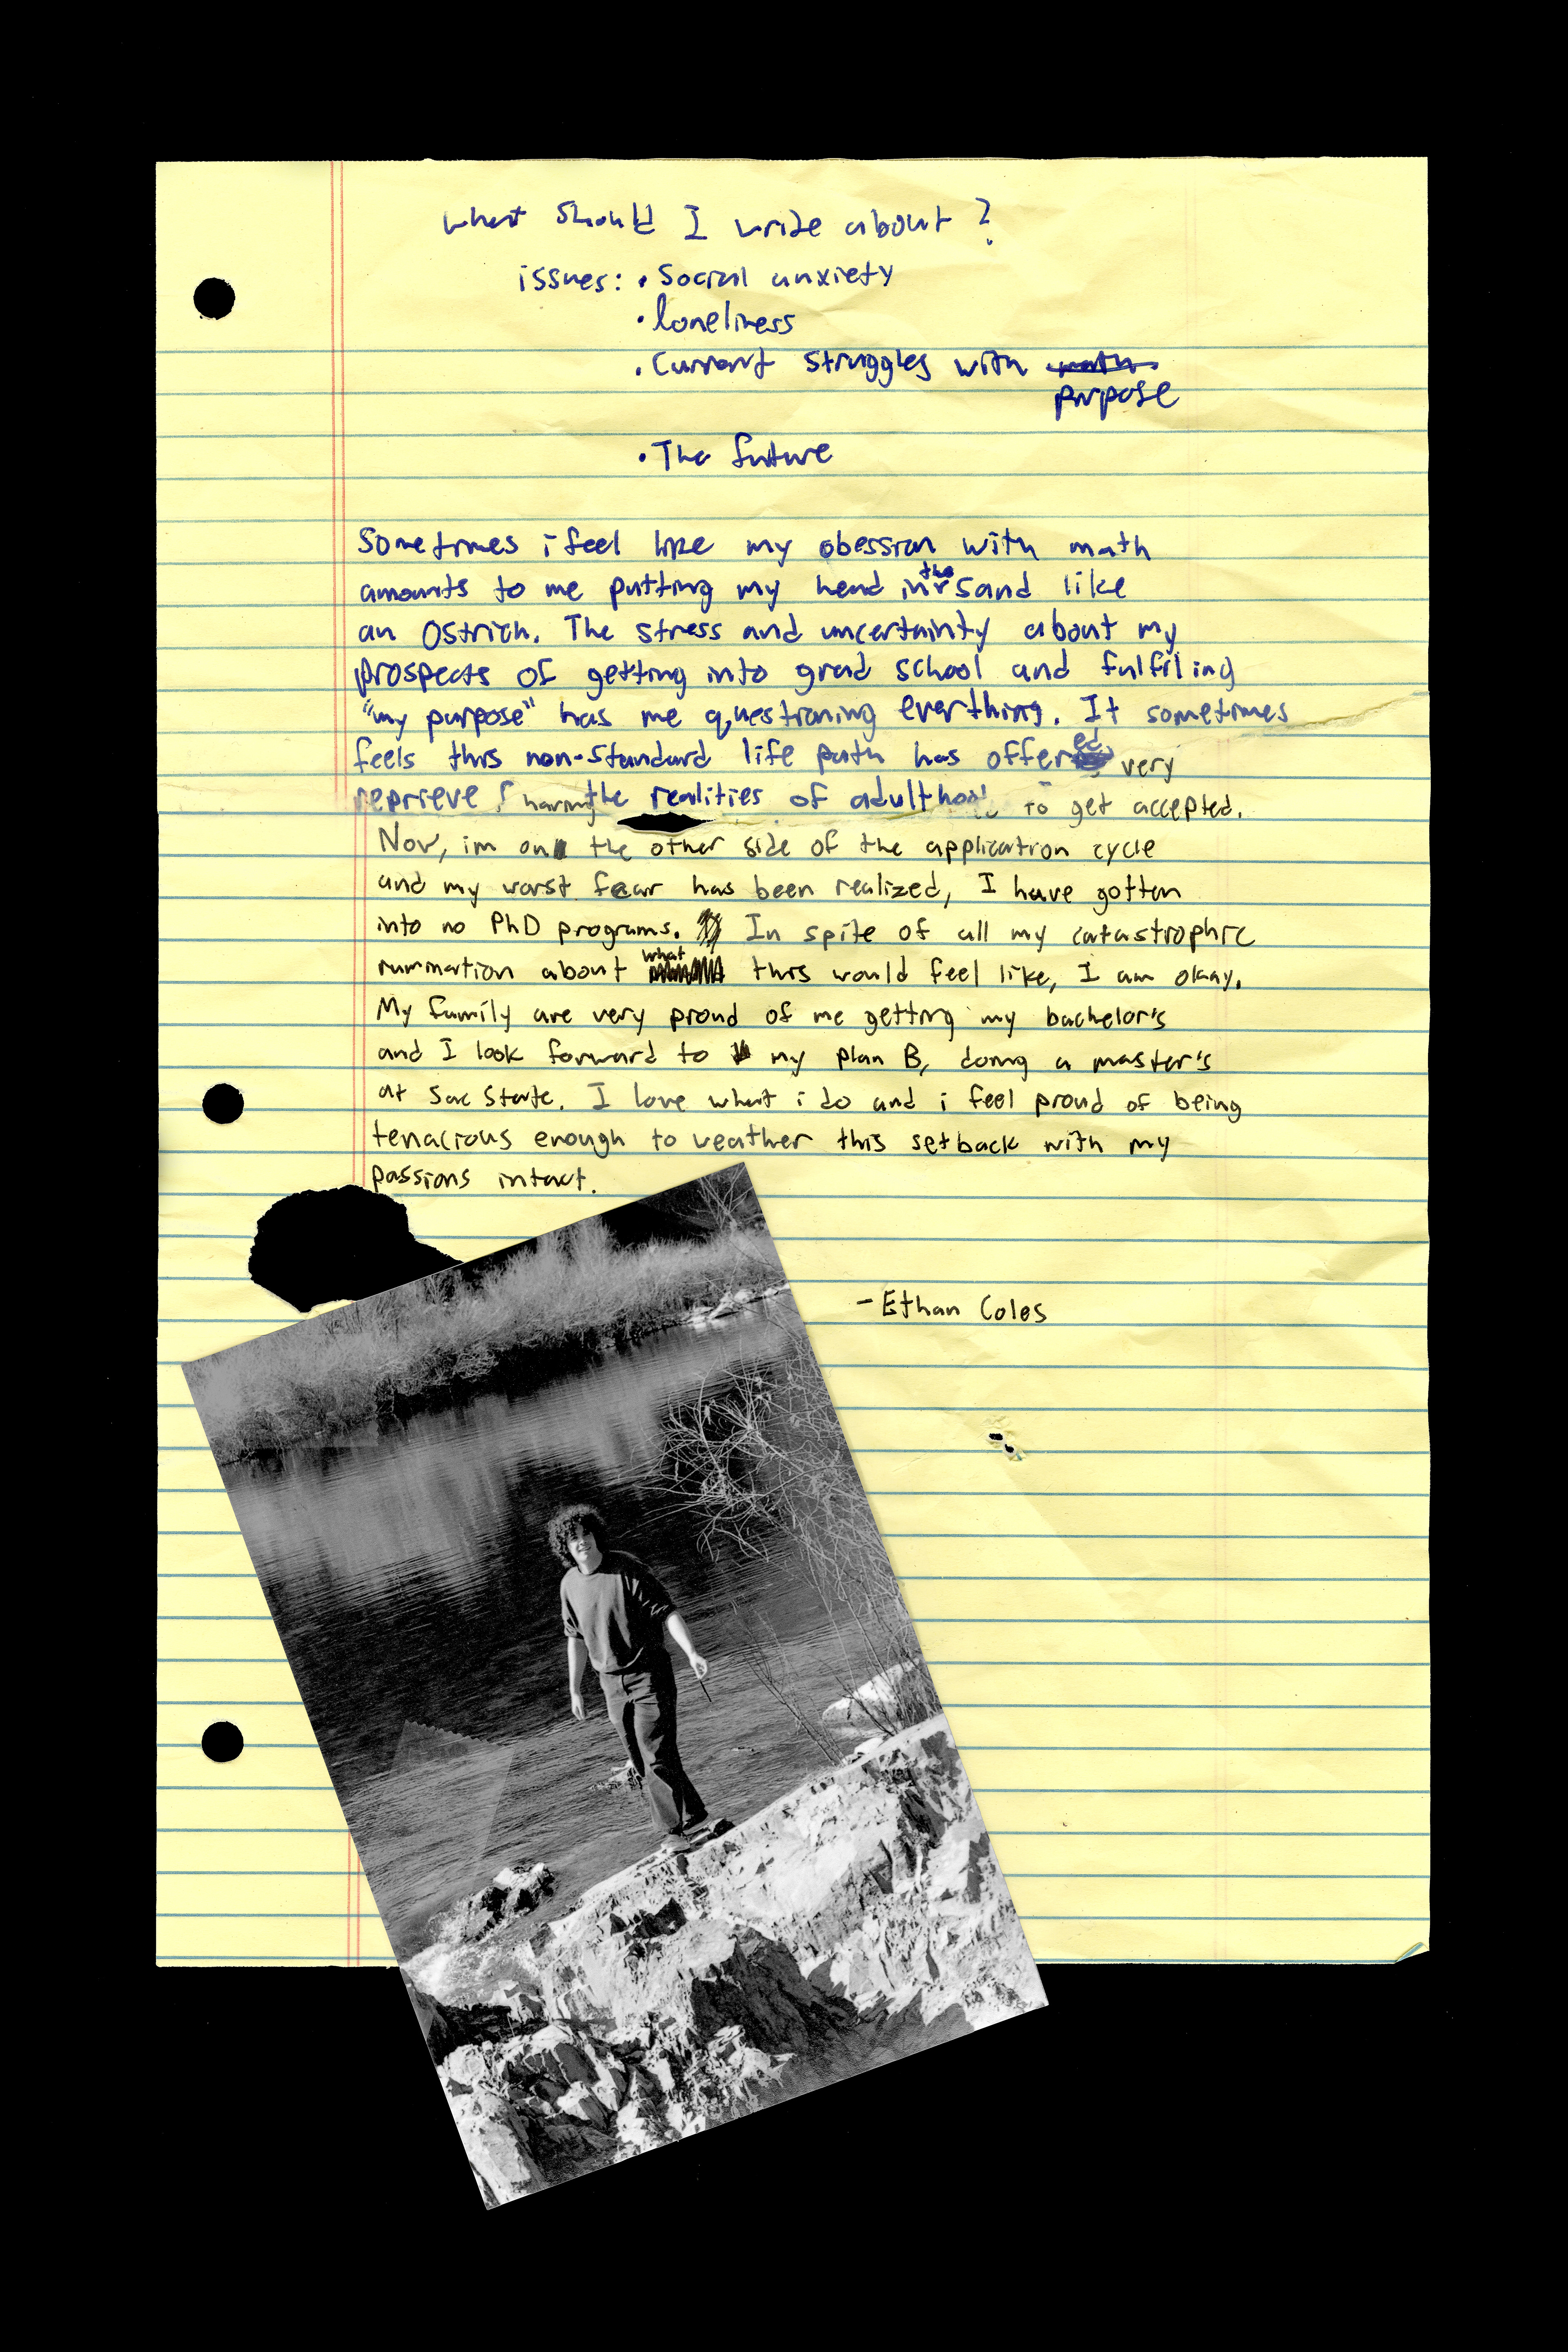 what should I write about?
issues: • Social anxiety
• loneliness
• Current struggles with math
purpose
• The future
Sometimes i feel like my obession with math
amounts to me putting my head in the sand like
an Ostrich. The stress and uncertainty about my
prospects of getting into grad school and fulfiling
"my purpose" has me questioning everthing. It sometimes
feels this non-standard life path has offered very
reprieve having the realities of adulthood to get accepted.
Now, im on the other side of the application cycle
and my worst fear has been realized, I have gotten
into no PhD programs. In spite of all my catastrophic
rumination about what this would feel like, I am okay.
My family are very proud of me getting my bachelor's
and I look forward to my plan B, doing a master's
at Sac State. I love what i do and i feel proud of being
tenacious enough to weather this setback with my
passions intact.
- Ethan Coles